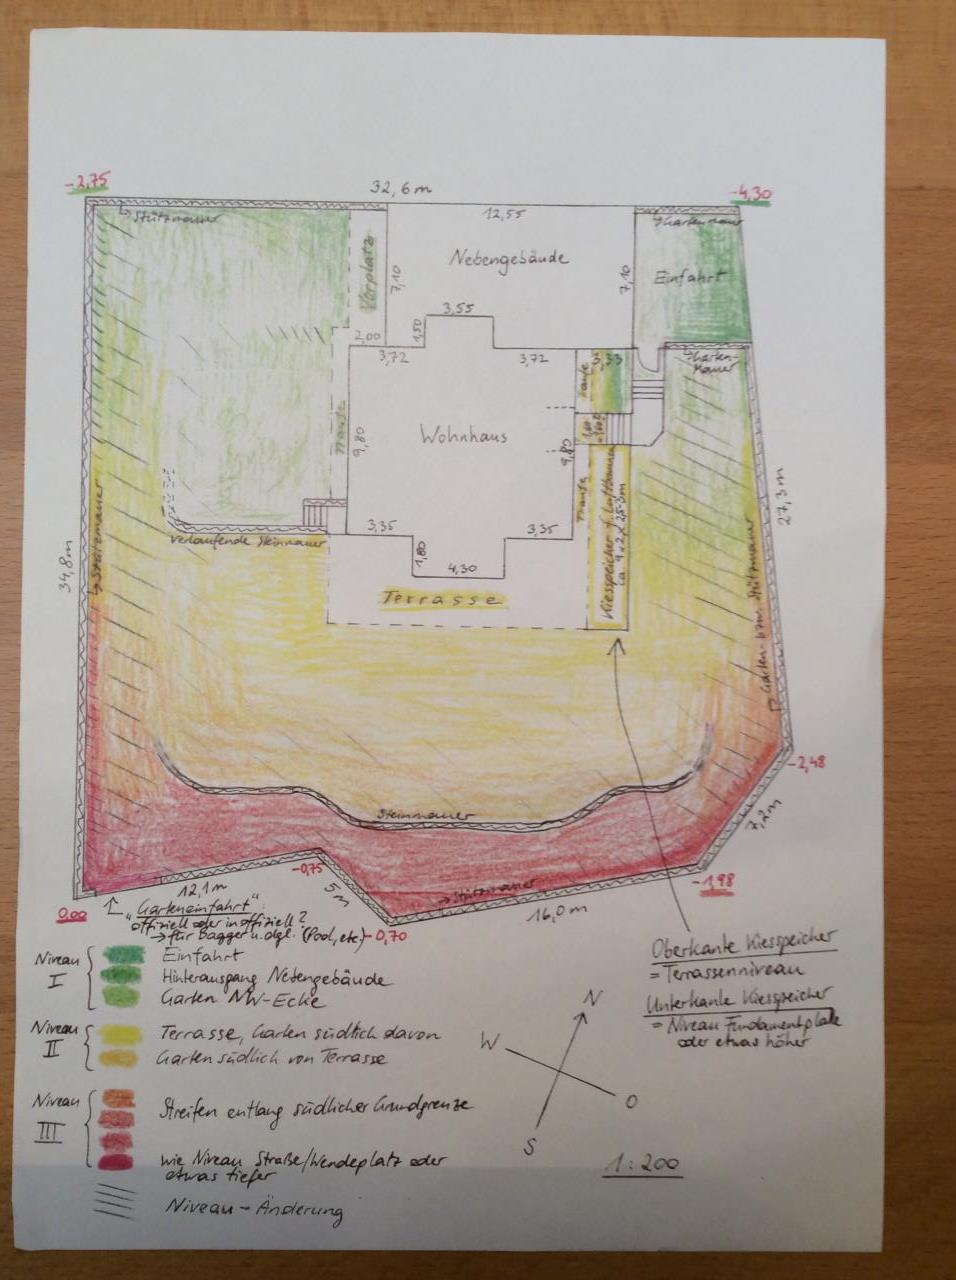 -2,75
32,6 m
-4,30
Stützmauer
12,55
Gartenmauer
Vorplatz
7,10
Nebengebäude
7,10
Einfahrt
3,55
1,50
2,00
3,72
3,72
3,33
Garten-
Mauer
Traufe
Traufe
9,80
Wohnhaus
9,80
Traufe
Kiesspeicher f. Luftbrunnen
ca. 9 x 2 x 2,5-3m
27,3 m
3,35
3,35
verlaufende Steinmauer
1,80
4,30
Terrasse
34,8 m
Stützmauer
Garten- bzw. Stützmauer
-2,48
7,2 m
Steinmauer
-0,75
12,1 m
5 m
Stützmauer
16,0 m
-1,98
0,00
"Garteneinfahrt"
offiziell oder inoffiziell?
→ für Bagger u. dgl. (Pool, etc)
-0,70
Niveau I
Einfahrt
Hinterausgang Nebengebäude
Garten NW-Ecke
Niveau II
Terrasse, Garten südlich davon
Garten südlich von Terrasse
Niveau III
Streifen entlang südlicher Grundgrenze
wie Niveau Straße/Wendeplatz oder
etwas tiefer
Niveau-Änderung
Oberkante Kiesspeicher
= Terrassenniveau
Unterkante Kiesspeicher
= Niveau Fundamentplatte
oder etwas höher
N
W
O
S
1:200